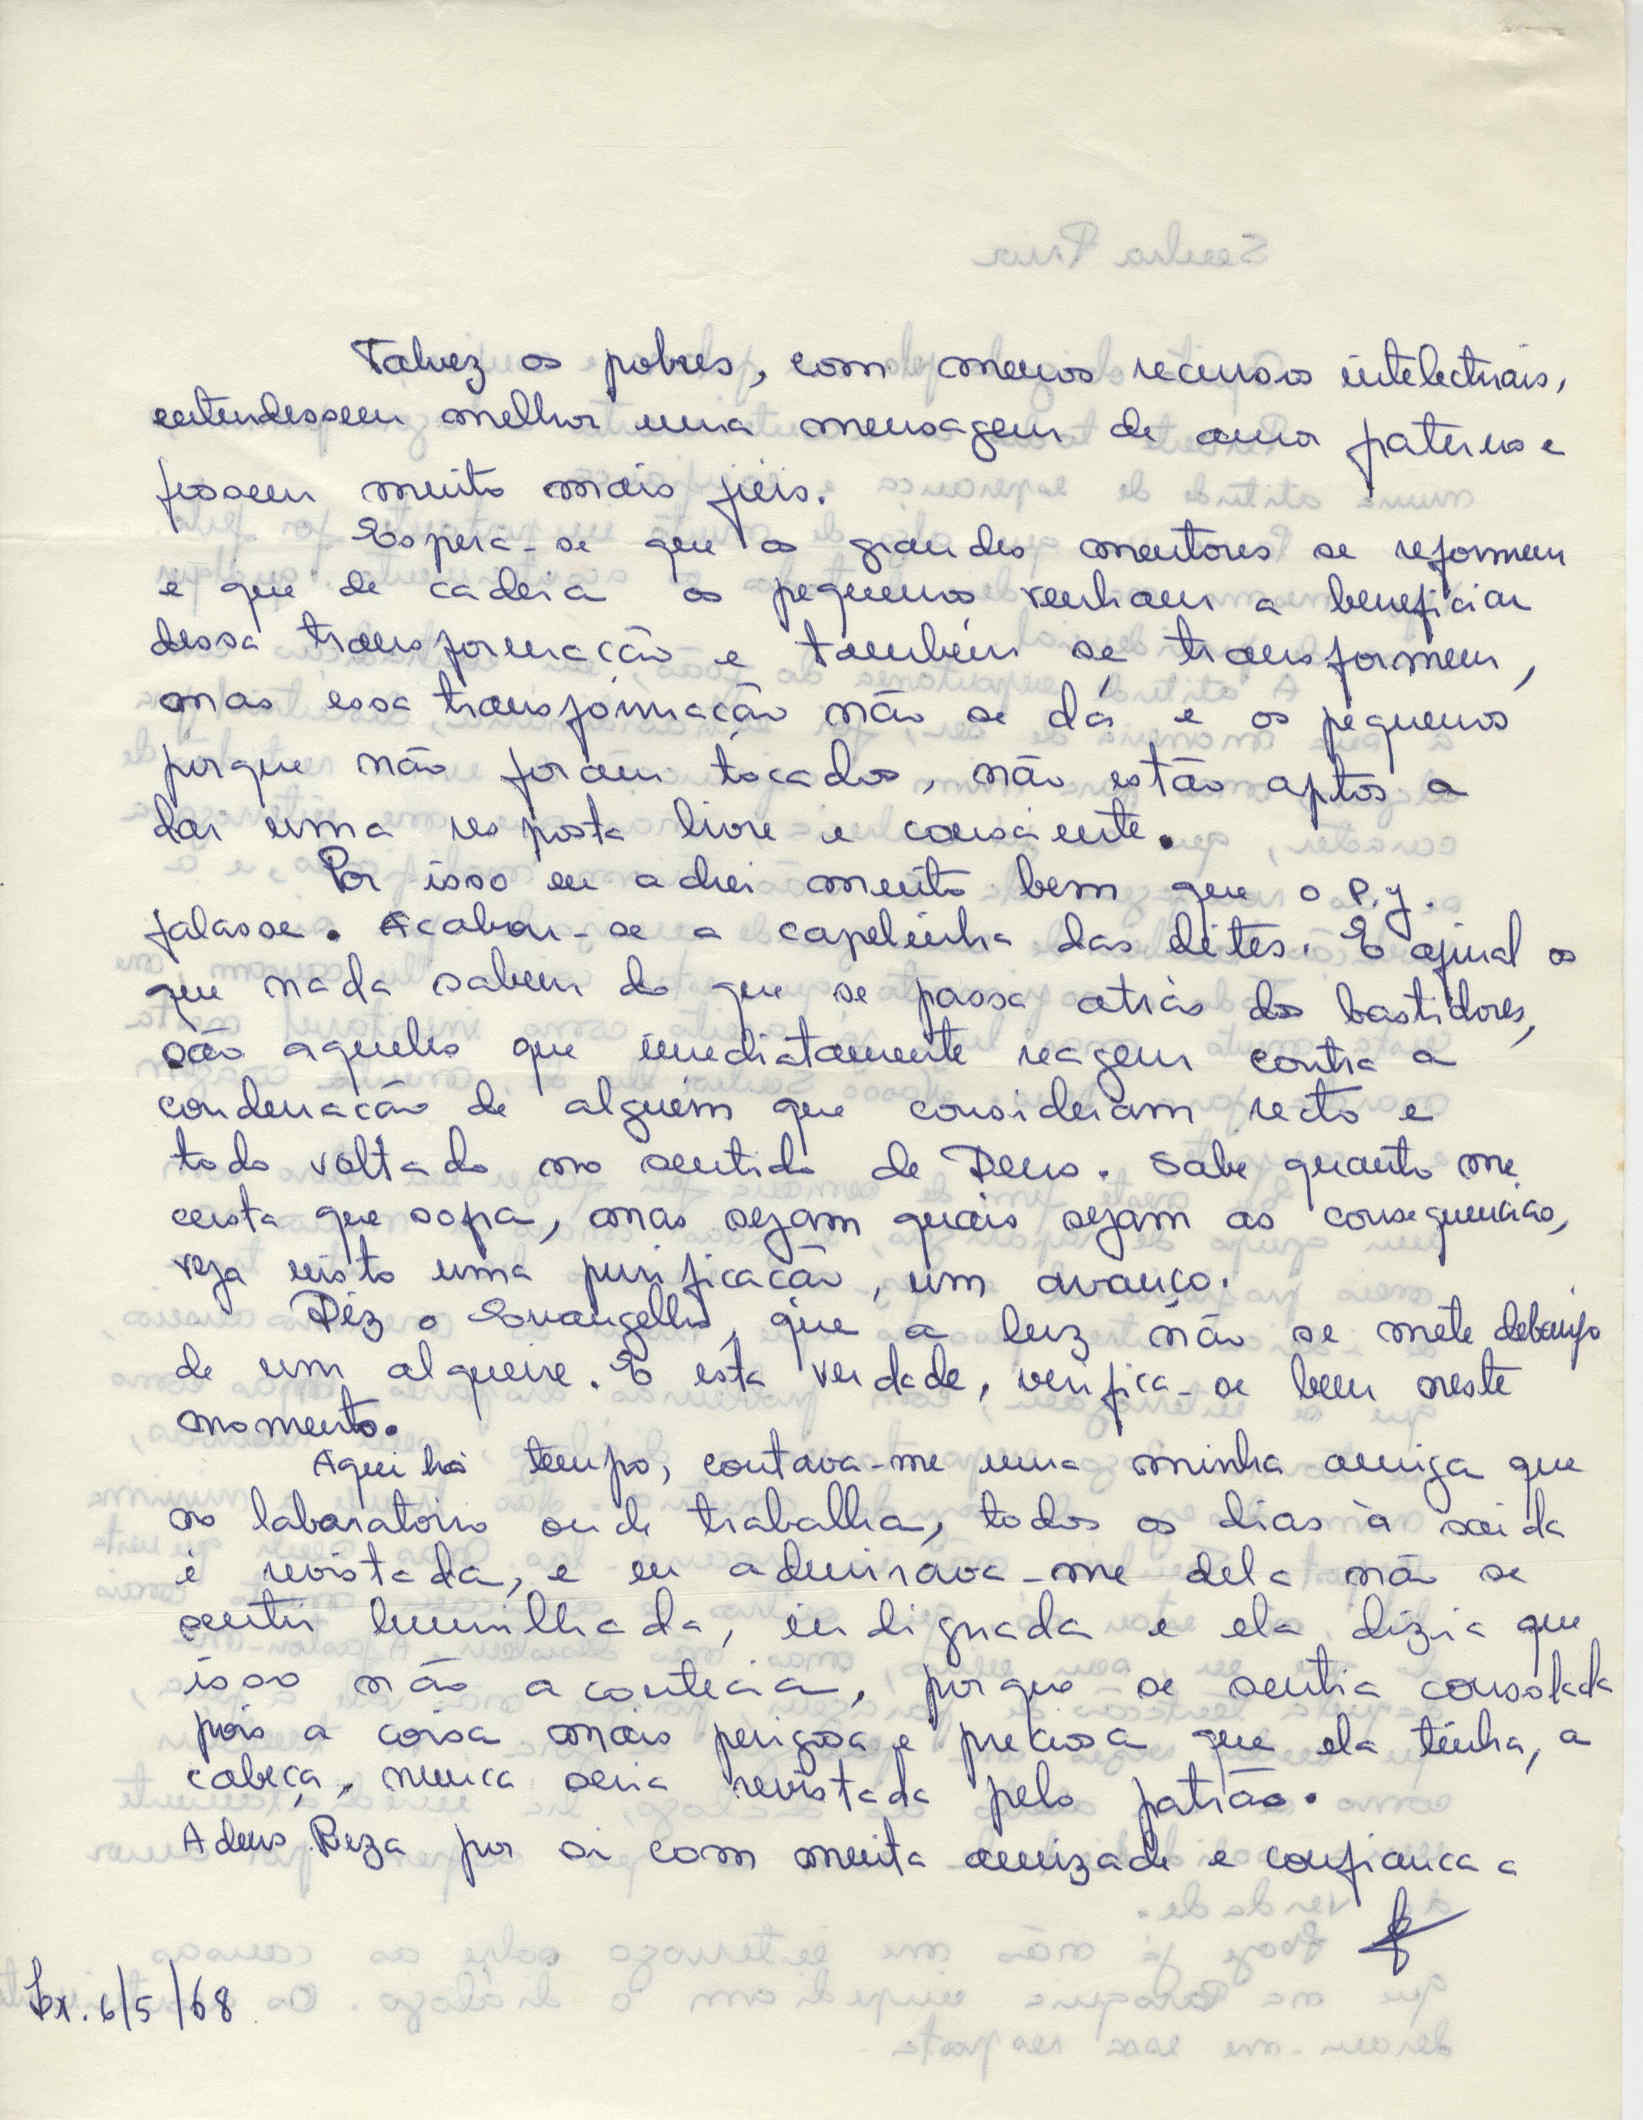 Talvez os pobres, com menos recursos intelectuais,
entendessem melhor uma mensagem de amor paterno e
fossem muito mais fieis.
Espera-se que os grandes mentores se reformem
e que de cadeia os pequenos venham a beneficiar
dessa transformação e também se transformem,
mas essa transformação não se dá e os pequenos
porque não foram tocados, não estão aptos a
dar uma resposta livre e consciente.
Por isso eu achei muito bem que o P.J.
falasse. Acabou-se a capelinha das elites. E afinal os
que nada sabem do que se passa atrás dos bastidores,
são aqueles que imediatamente reagem contra a
condenação de alguém que consideram recto e
todo voltado no sentido de Deus. Sabe quanto me
custa que sofra, mas sejam quais sejam as consequencias,
veja nisto uma purificação, um avanço.
Diz o Evangelho, que a luz não se mete debaixo
de um alqueire. E esta verdade, verifica-se bem neste
momento.
Aqui há tempo, contava-me uma minha amiga que
no laboratório onde trabalha, todos os dias à saida
é revistada, e eu admirava-me dela não se
sentir humilhada, indignada e ela dizia que
isso não acontecia, porque se sentia consolada
pois a coisa mais perigosa e preciosa que ela tinha, a
cabeça, nunca seria revistada pelo patrão.
Adeus. Reza por si com muita amizade e confiança a
Lx. 6/5/68